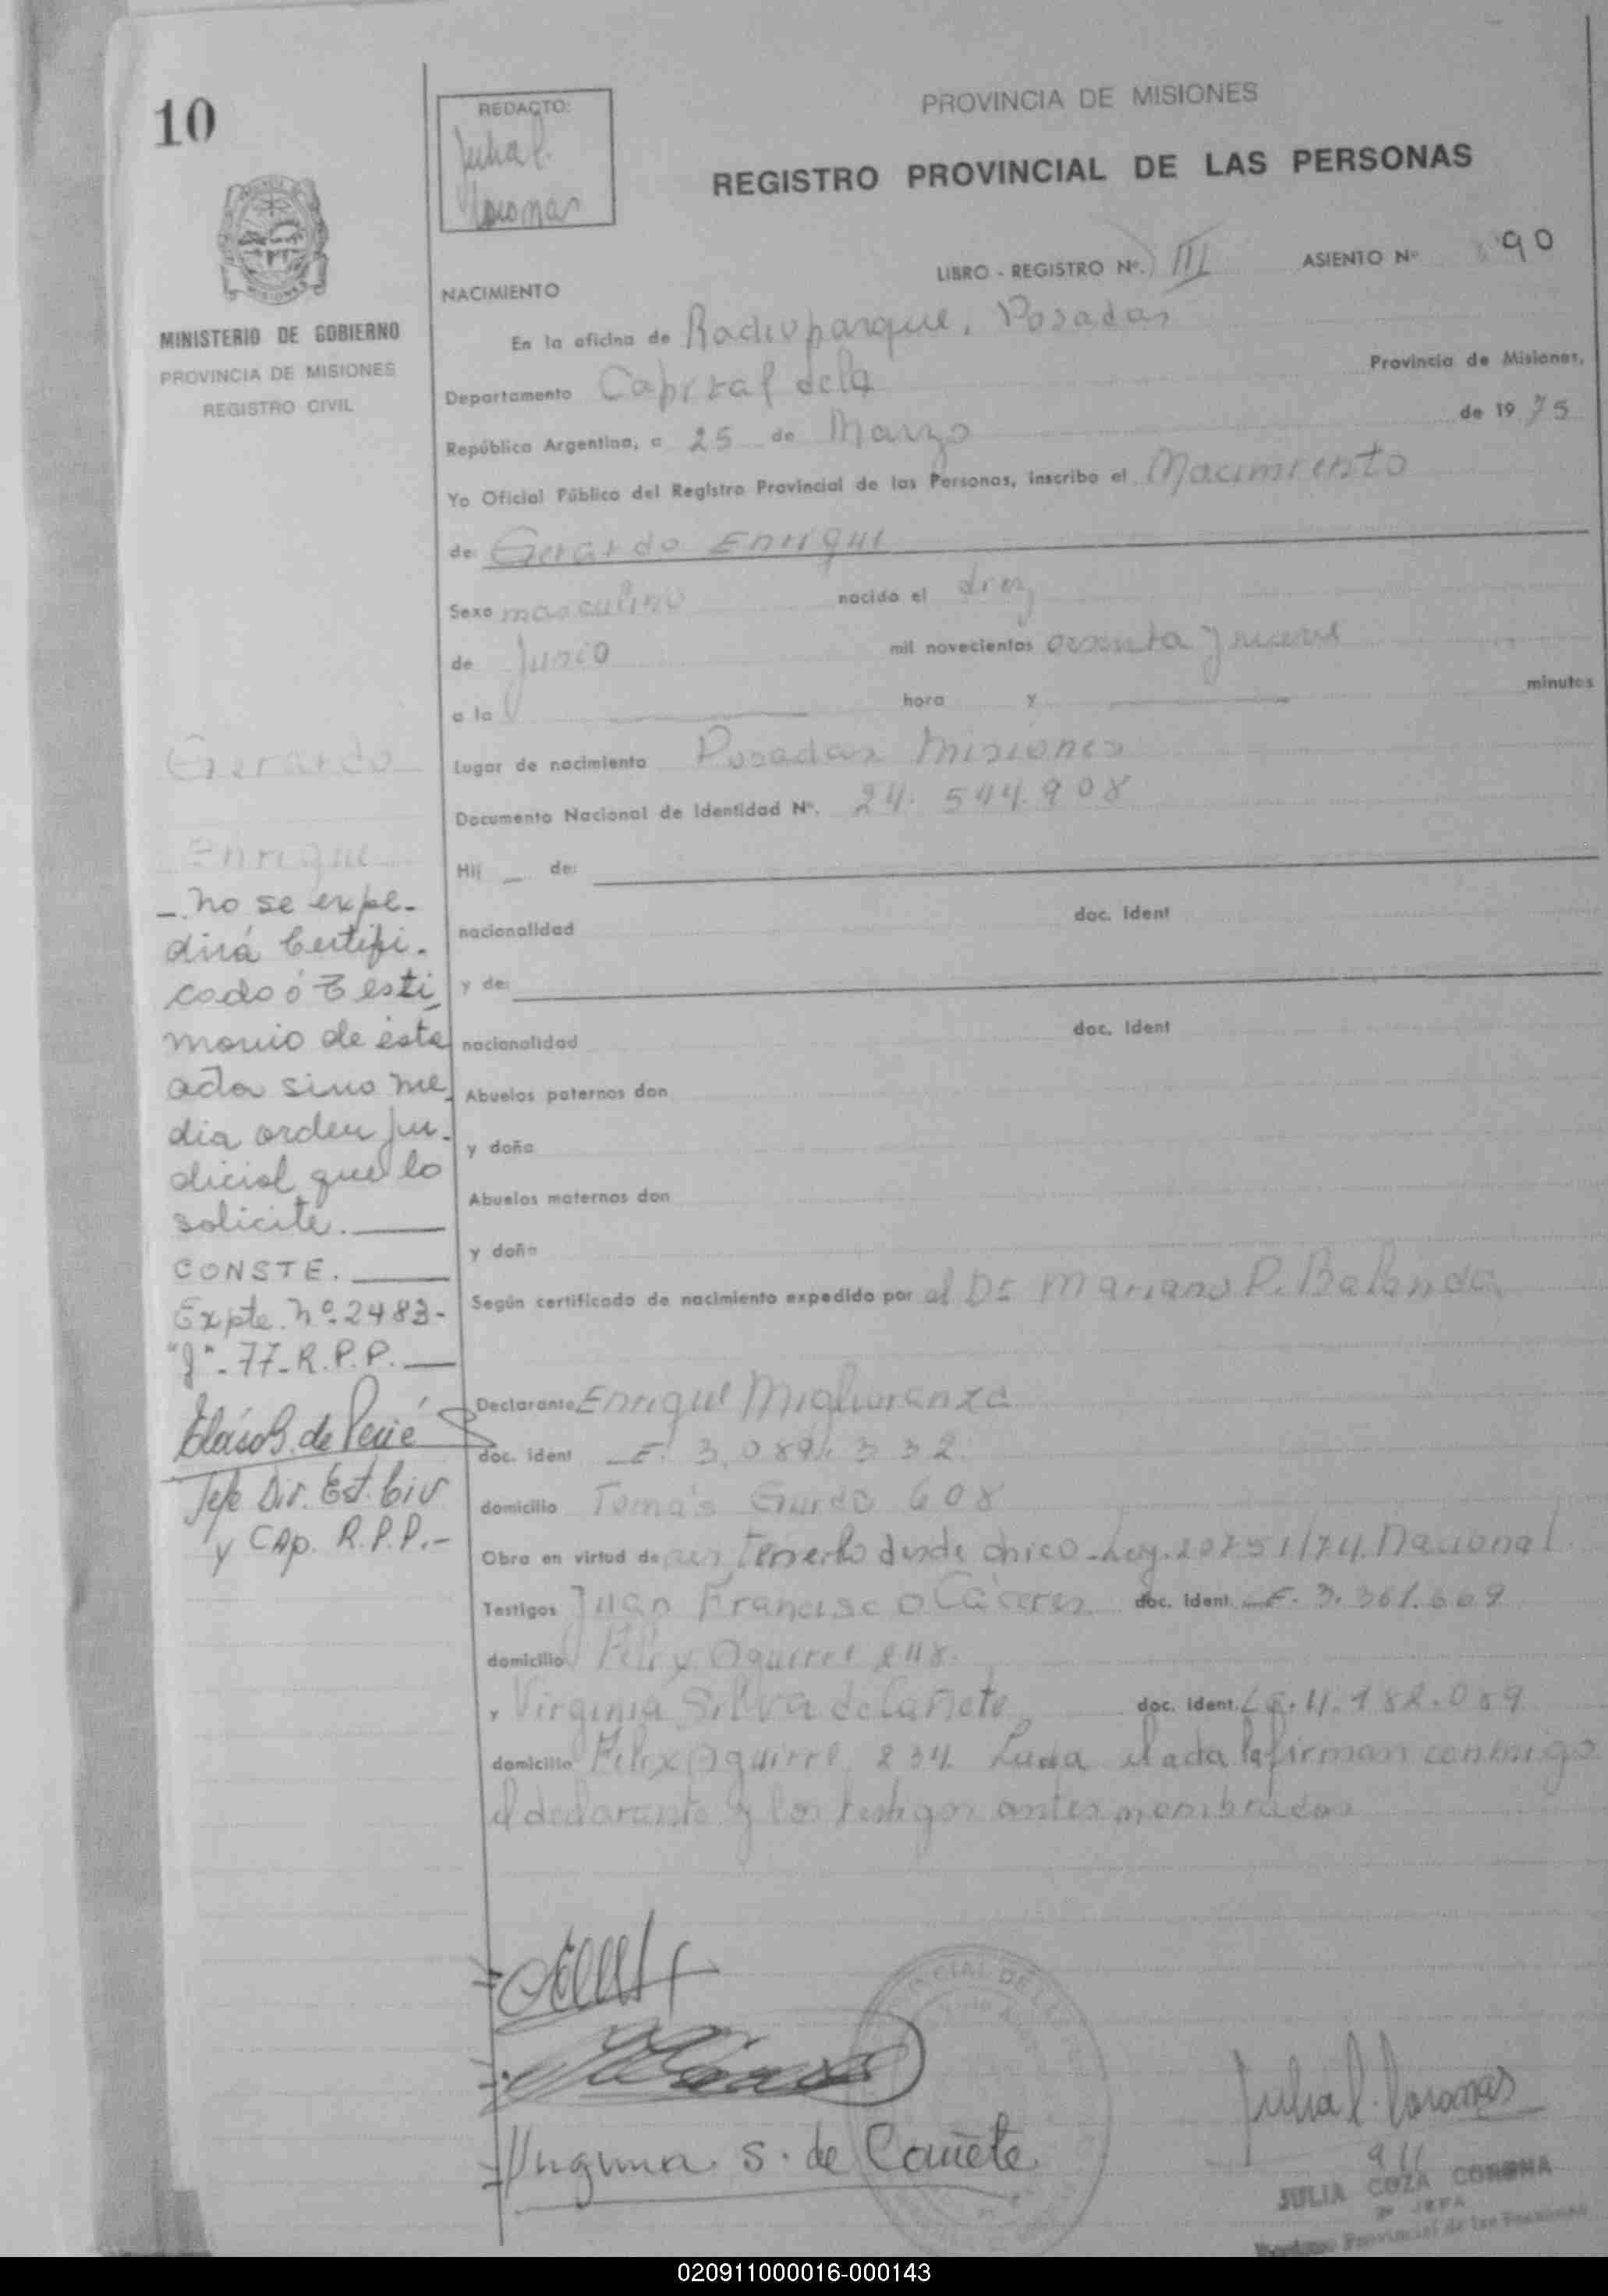 10
REDACTO:
Julia C.
Coronas
PROVINCIA DE MISIONES
REGISTRO PROVINCIAL DE LAS PERSONAS
LIBRO - REGISTRO Nº. III ASIENTO Nº 90
MINISTERIO DE GOBIERNO
PROVINCIA DE MISIONES
REGISTRO CIVIL
NACIMIENTO
En la oficina de Radioparque, Posadas
Departamento Capital de la Provincia de Misiones,
República Argentina, a 25 de Marzo de 1975
Yo Oficial Público del Registro Provincial de las Personas, inscribo el Nacimiento
de: Gerardo Enrique
Sexo masculino nacido el diez
de Junio mil novecientos sesenta y nueve
a la hora y minutos
Lugar de nacimiento Posadas Misiones
Documento Nacional de Identidad Nº. 24.544.908
Hij de:
nacionalidad doc. ident
y de:
nacionalidad doc. ident
Abuelos paternos don
y doña
Abuelos maternos don
y doña
Según certificado de nacimiento expedido por el Dr Mariano P. Balanda
Declarante Enrique Miglioranza
doc. ident L.E. 3.089.332.
domicilio Tomás Guido 608
Obra en virtud de tenerlo desde chico - Ley. 20751/74. Nacional.
Testigos Juan Francisco Cáceres doc. ident. L.E. 3.361.609
domicilio Felix Aguirre 248.
y Virginia Silva de Cañete doc. ident. L.C. 4.182.089
domicilio Felix Aguirre 234. Leida el acta la firman conmigo
el declarante y los testigos antes nombrados
Gerardo
Enrique
- No se expe-
dirá Certifi-
cado ó Testi-
monio de ésta
acta sino me-
dia orden ju-
dicial que lo
solicite.
CONSTE.
Expte. Nº 2483-
"J"- 77- R.P.P.
Jefe Dir. Est. Civ
y CAp. R.P.P.-
Virginia S. de Cañete
Julia C. Coronas
JULIA COZA CORONA
JEFA
Provincial de las Personas
020911000016-000143